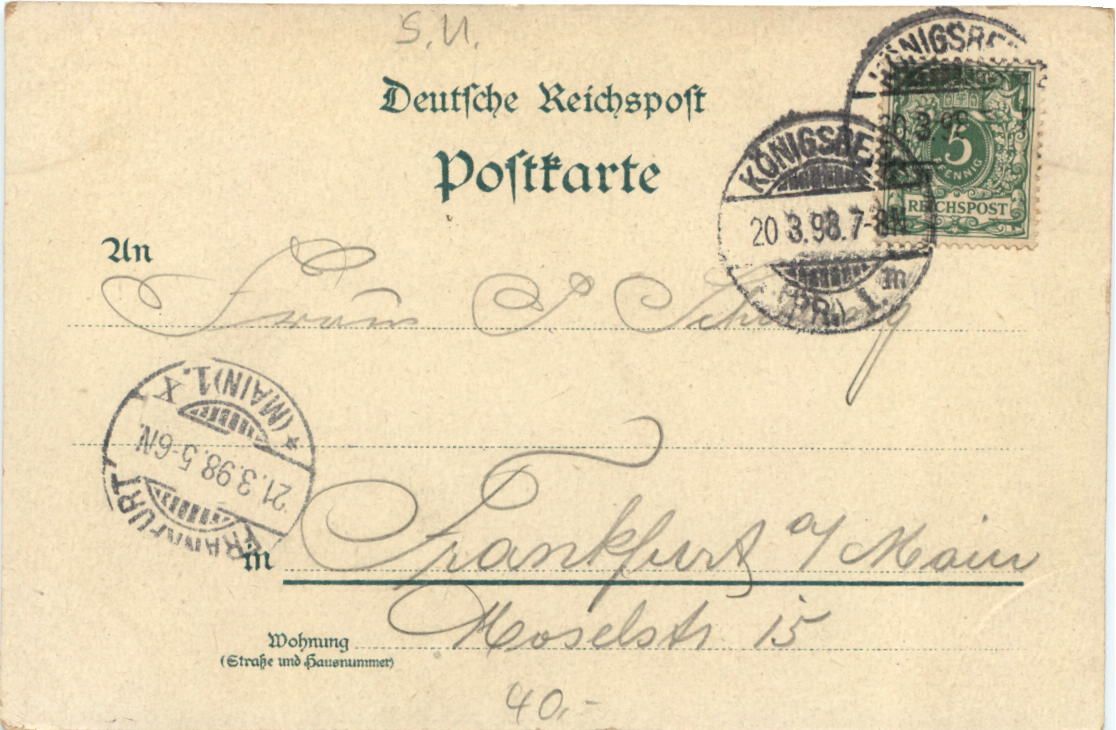 S.U.
Deutsche Reichspost
Postkarte
KÖNIGSBE
20 3.98
5
PFENNIG
REICHSPOST
KÖNIGSBE
20 3.98.7-8N
(PR.) 1. m
An
(MAIN) 1. X
21.3.98.5-6N.
FRANKFURT
in Frankfurt a/ Main
Wohnung Moselstr. 15
(Straße und Hausnummer)
40.-